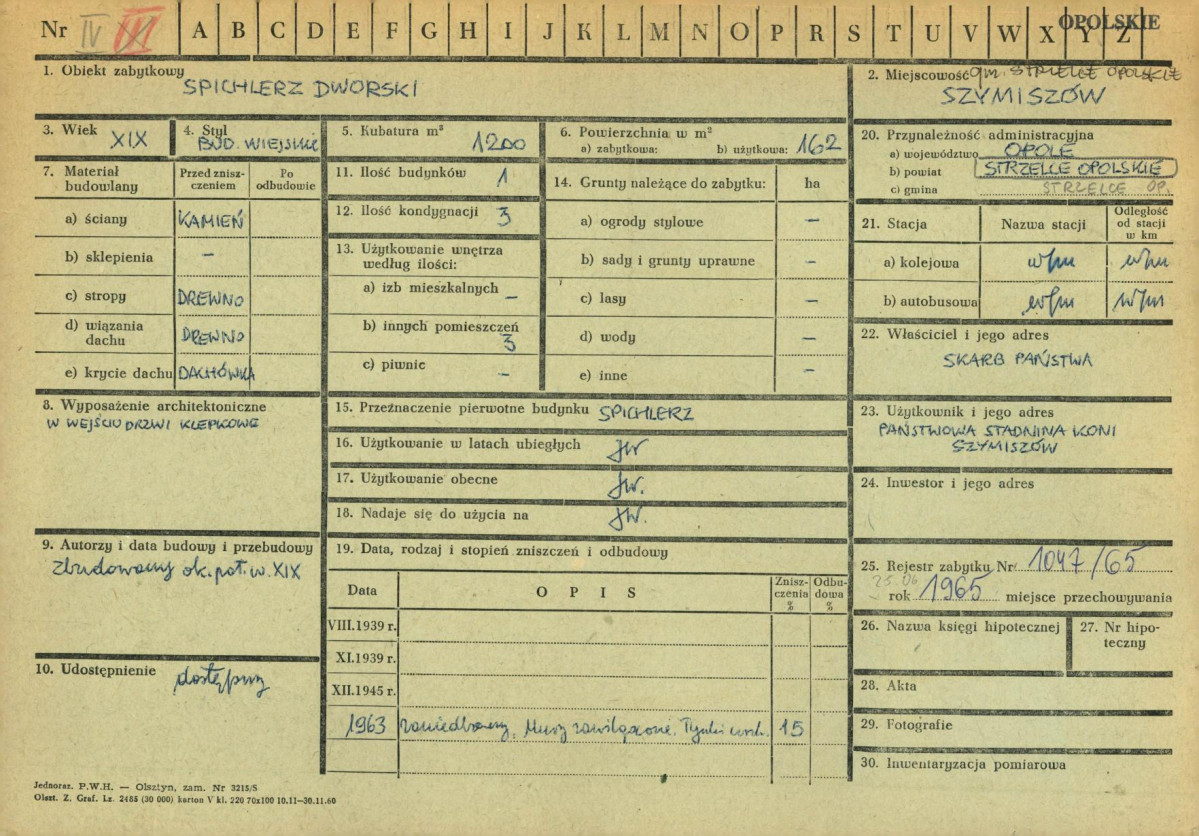 OPOLSKIE
Nr IV III A B C D E F G H I J K L M N O P R S T U V W X Y Z
1. Obiekt zabytkowy
SPICHLERZ DWORSKI
2. Miejscowość gm. STRZELCE OPOLSKIE
SZYMISZÓW
3. Wiek XIX
4. Styl
BUD. WIEJSKIE
5. Kubatura m³
1200
6. Powierzchnia w m²
a) zabytkowa: b) użytkowa: 162
7. Materiał budowlany
Przed znisz-
czeniem
Po
odbudowie
a) ściany KAMIEŃ
b) sklepienia –
c) stropy DREWNO
d) wiązania
dachu DREWNO
e) krycie dachu DACHÓWKA
8. Wyposażenie architektoniczne
W WEJŚCIU DRZWI KLEPKOWE
9. Autorzy i data budowy i przebudowy
zbudowany ok. poł. w. XIX
10. Udostępnienie dostępny
11. Ilość budynków 1
12. Ilość kondygnacji 3
13. Użytkowanie wnętrza
według ilości:
a) izb mieszkalnych –
b) innych pomieszczeń
3
c) piwnic –
14. Grunty należące do zabytku: ha
a) ogrody stylowe –
b) sady i grunty uprawne –
c) lasy –
d) wody –
e) inne –
15. Przeznaczenie pierwotne budynku SPICHLERZ
16. Użytkowanie w latach ubiegłych JW
17. Użytkowanie obecne JW.
18. Nadaje się do użycia na JW.
19. Data, rodzaj i stopień zniszczeń i odbudowy
Data
O P I S
Znisz-
czenia
%
Odbu-
dowa
%
VIII.1939 r.
XI.1939 r.
XII.1945 r.
1963 zaniedbany. Mury zawilgocone. Tynki 15
20. Przynależność administracyjna
a) województwo OPOLE
b) powiat STRZELCE OPOLSKIE
c) gmina STRZELCE OP.
21. Stacja
Nazwa stacji
Odległość
od stacji
w km
a) kolejowa w/m w/m
b) autobusowa w/m w/m
22. Właściciel i jego adres
SKARB PAŃSTWA
23. Użytkownik i jego adres
PAŃSTWOWA STADNINA KONI
SZYMISZÓW
24. Inwestor i jego adres
25. Rejestr zabytku Nr 1047/65
25.06
rok 1965 miejsce przechowywania
26. Nazwa księgi hipotecznej
27. Nr hipo-
teczny
28. Akta
29. Fotografie
30. Inwentaryzacja pomiarowa
Jednoraz. P.W.H. — Olsztyn, zam. Nr 3215/S
Olszt. Z. Graf. Lz. 2485 (30 000) karton V kl. 220 70x100 10.11—30.11.60